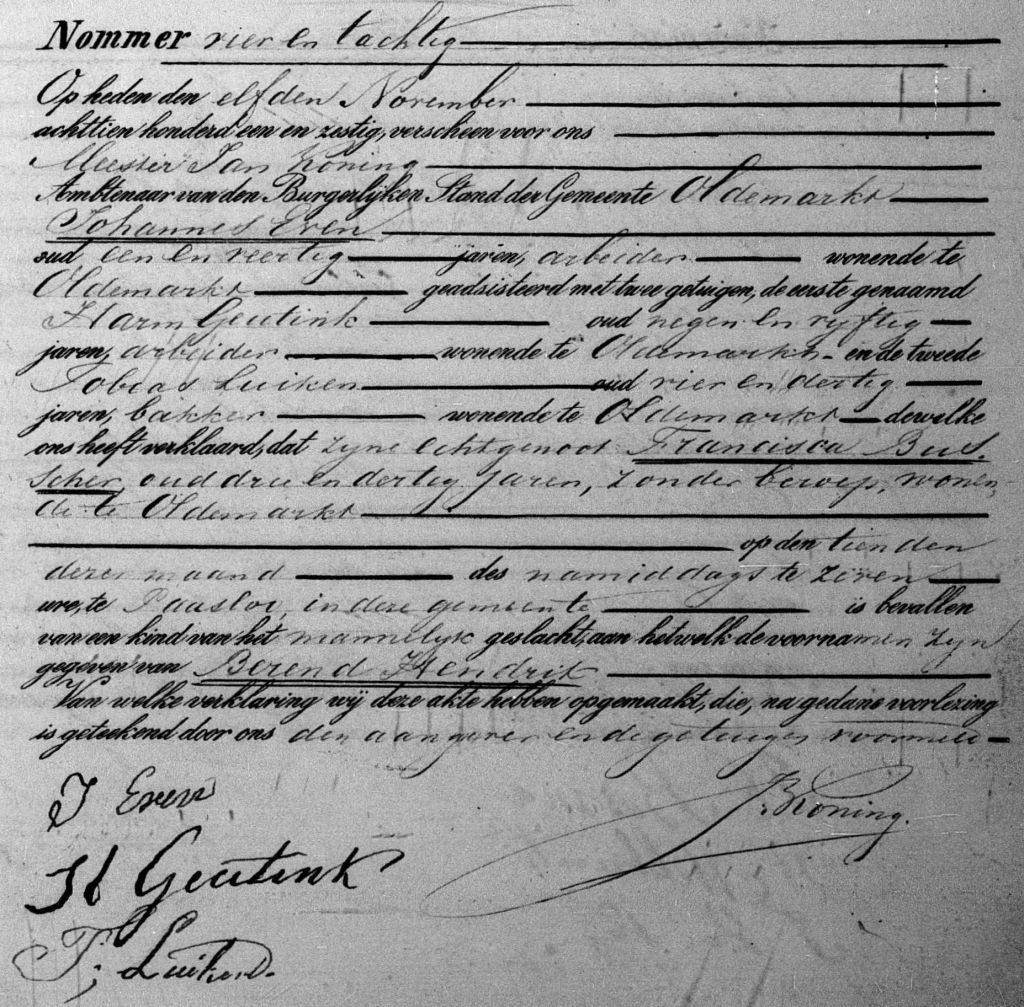 Nommer vier en tachtig
Op heden den elfden November
achttien honderd een en zestig, verscheen voor ons
Meester Jan Koning
Ambtenaar van den Burgerlijken Stand der Gemeente Oldemarkt
Johannes Even
oud een en veertig jaren, arbeider wonende te
Oldemarkt geadsisteerd met twee getuigen, de eerste genaamd
Harm Geutink oud negen en vyftig
jaren, arbeider wonende te Oldemarkt en de tweede
Tobias Luiken oud vier en dertig
jaren, bakker wonende te Oldemarkt dewelke
ons heeft verklaard, dat zyne echtgenoot Francisca Bus-
scher, oud drie en dertig jaren, zonder beroep, wonen-
de te Oldemarkt
op den tienden
dezer maand des namiddags te zeven
ure, te Paaslo, in deze gemeente is bevallen
van een kind van het mannelyk geslacht, aan hetwelk de voornamen zyn
gegeven van Berend Hendrik
Van welke verklaring wij deze akte hebben opgemaakt, die, na gedane voorlezing
is geteekend door ons den aangever en de getuigen voormeld
J Even
J Koning.
H Geutink
T. Luiken